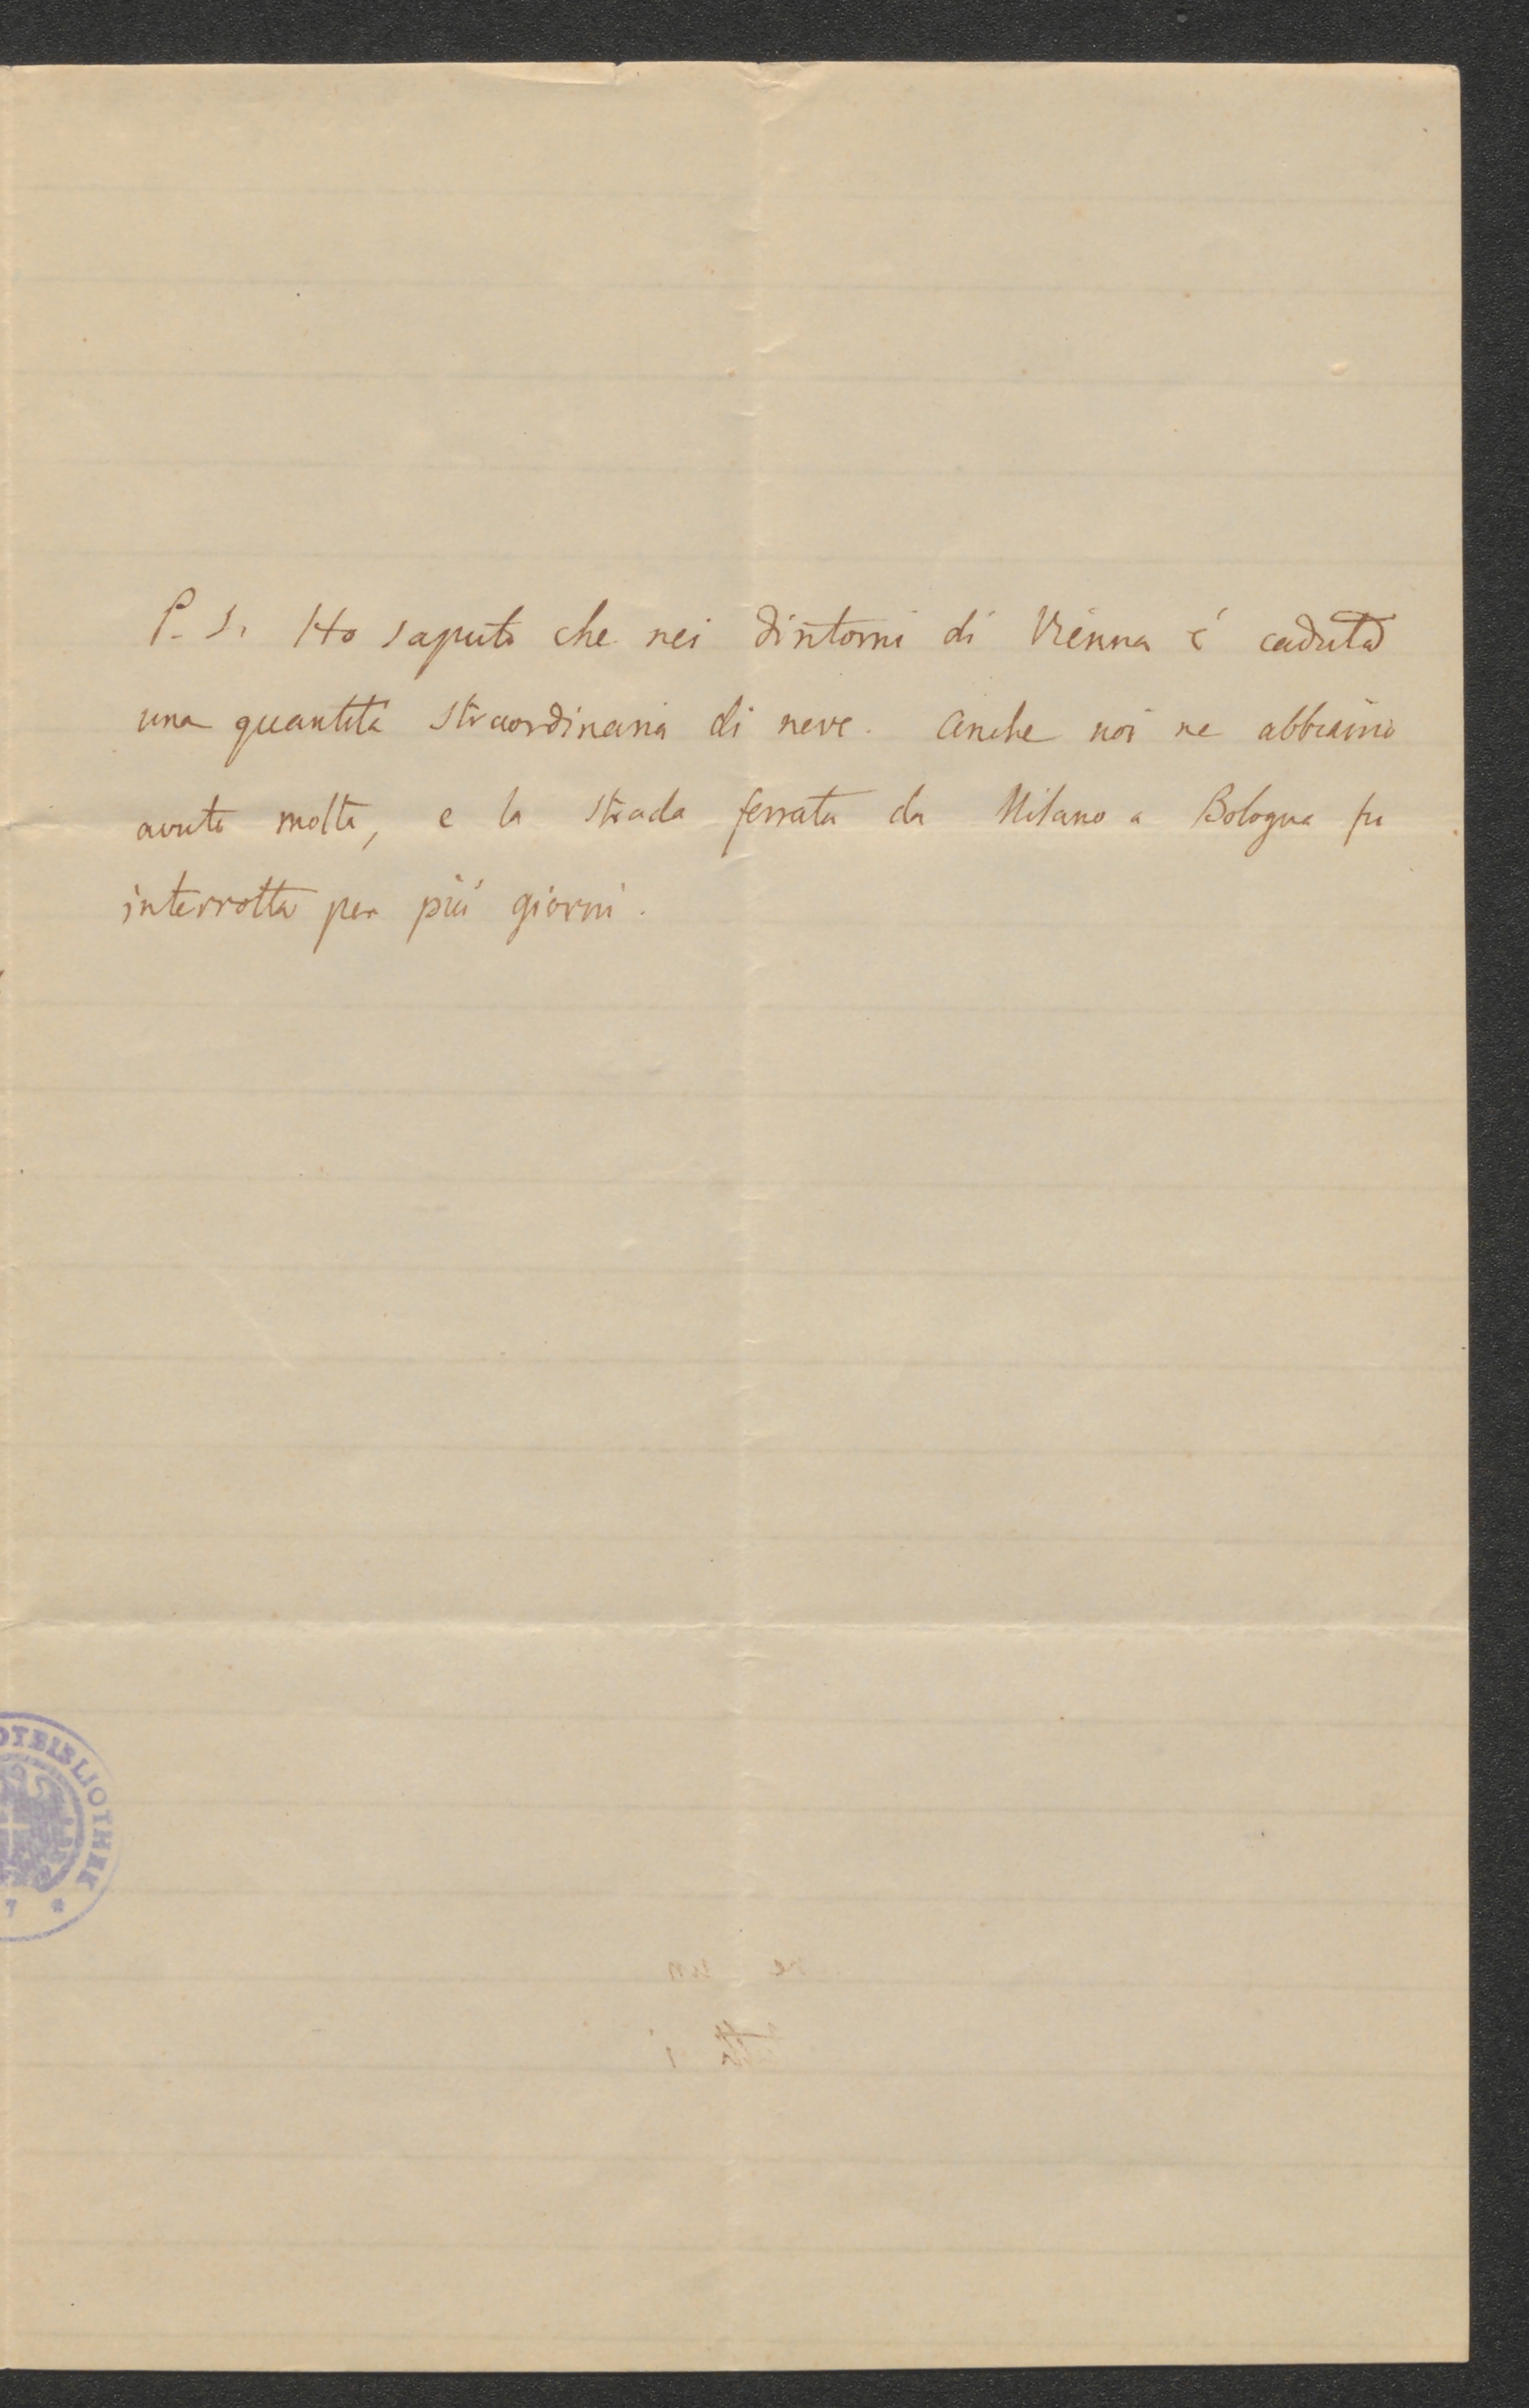 P. S. Ho saputo che nei dintorni di Vienna è caduta
una quantità straordinaria di neve. Anche noi ne abbiamo
avuto molta, e la strada ferrata da Milano a Bologna fu
interrotta per più giorni.
OTBIBLIOTHEK
7 *